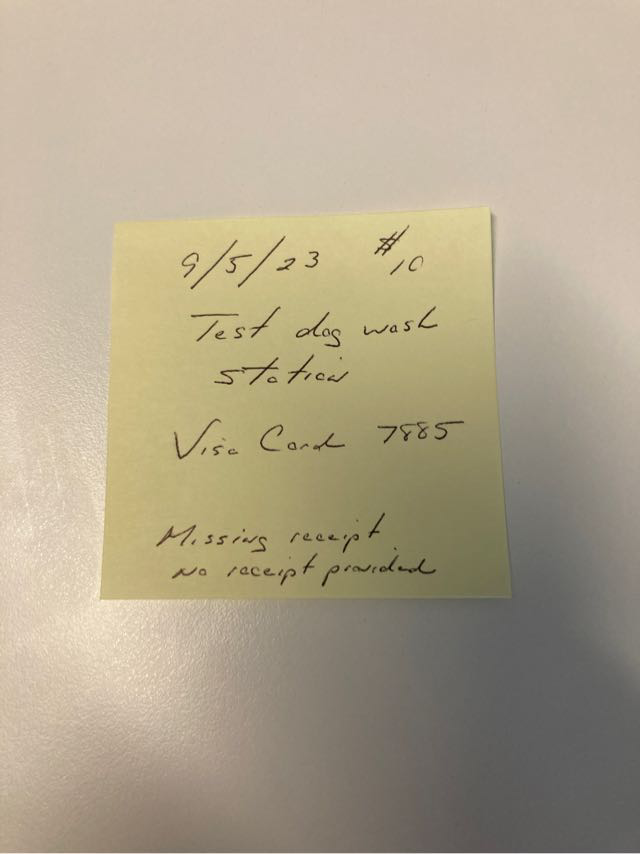 9/5/23 #10
Test dog wash
station
Visa Card 7885
Missing receipt
No receipt provided